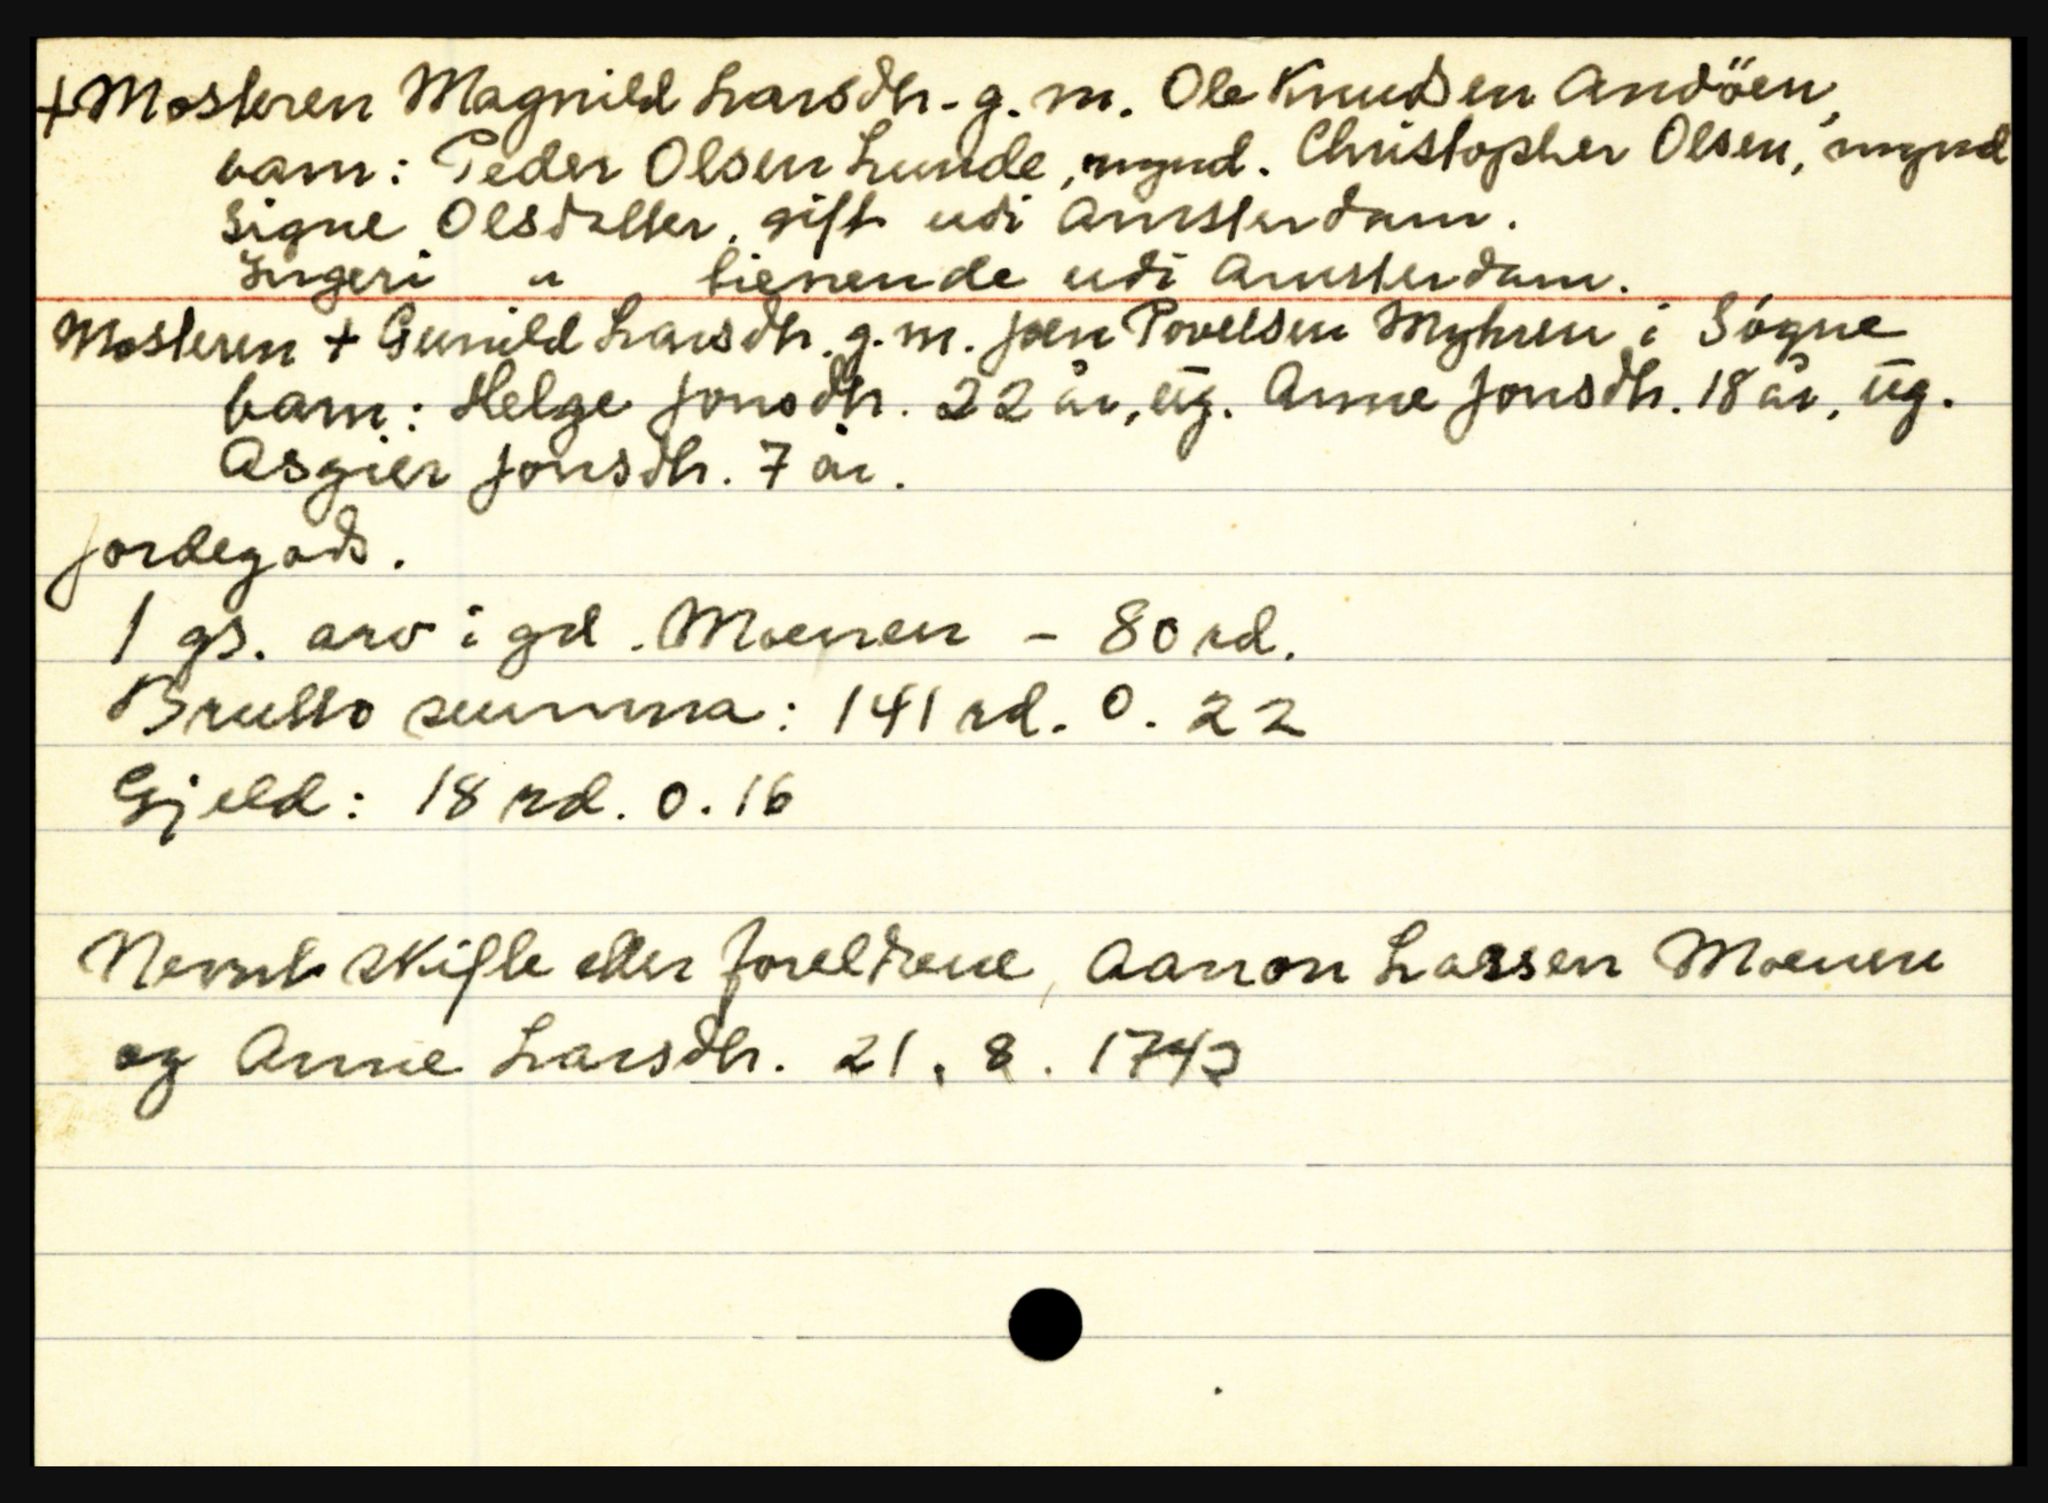 + Mosteren Magnild Larsdtr. g. m. Ole Knudsen Andöen,
barn: Peder Olsen Lunde, mynd. Christopher Olsen, mynd
Signe Olsdatter, gift udi Amsterdam.
Ingeri " tienende udi Amsterdam.
Mosteren + Gunild Larsdtr. g. m. Joen Povelsen Myhren i Sögne
barn: Helge Jonsdtr. 22 år, ug. Anne Jonsdtr. 18 år, ug.
Asgier Jonsdtr. 7 år.
Jordegods.
1 gs. arv i gd. Moenen - 80 rd.
Brutto summa: 141 rd. 0. 22
Gjeld: 18 rd. 0. 16
Nevnt skifte etter foreldrene, Aanon Lassen Moenen
og Anne Larsdtr. 21. 8. 1743